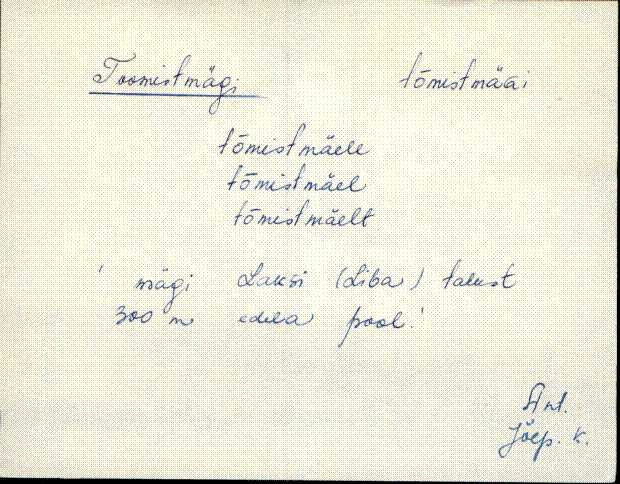 Toomistmägi tōmistmäǵi
tōmistmäele
tōmistmäel
tōmistmäelt
' mägi Laksi (Liba) talust
300 m edela pool.'
Ant.
Jõep. k.